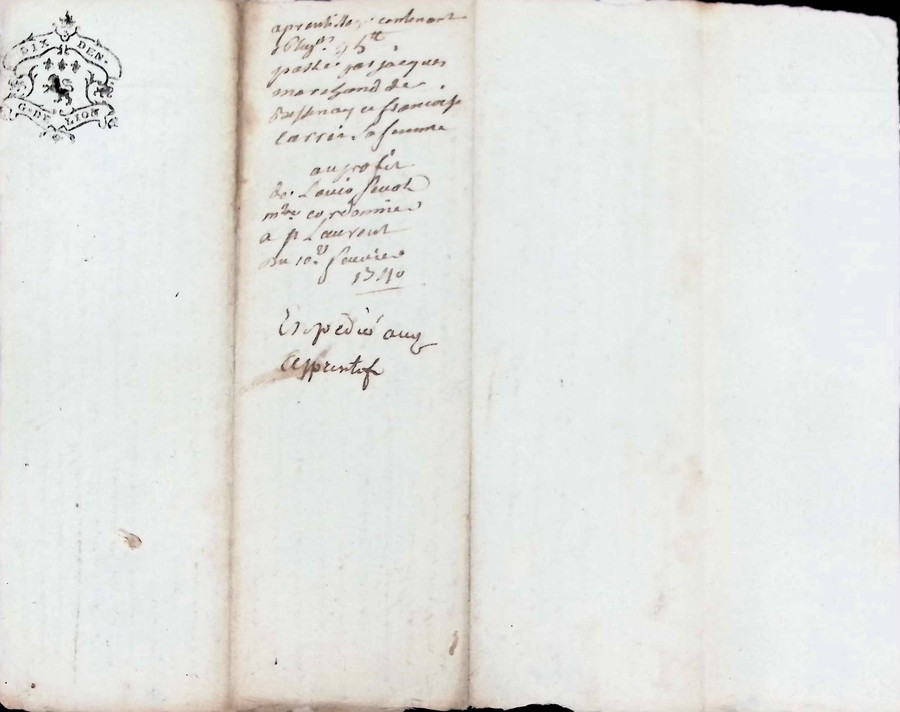 DIX DEN.
G. DE LION
aprentissage contenant
oblig.on 95tt
passé par jacques
marchand de
et francoise
Carrie sa femme
au profit
de Louis
mtre cordonnier
a st Laurent
Du 10e Janvier
1740
Expédié aux
apprentifs